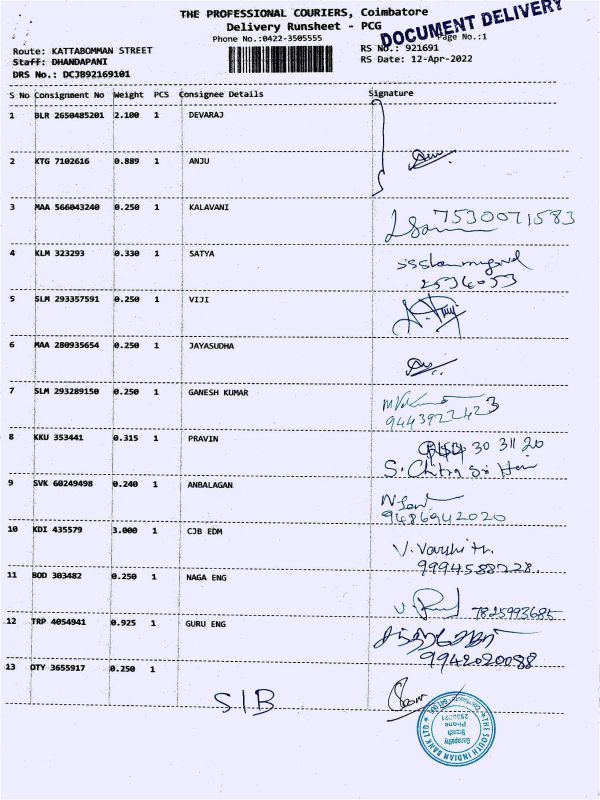 THE PROFESSIONAL COURIERS, Coimbatore
Delivery Runsheet - PCG
DOCUMENT DELIVERY
Phone No.:0422-3505555
Page No.:1
Route: KATTABOMMAN STREET
RS No.: 921691
Staff: DHANDAPANI
RS Date: 12-Apr-2022
DRS No.: DCJB92169101
S No Consignment No Weight PCS Consignee Details Signature
1 BLR 2650485201 2.100 1 DEVARAJ
2 KTG 7102616 0.889 1 ANJU
3 MAA 566043240 0.250 1 KALAVANI 7530071583
4 KLM 323293 0.330 1 SATYA
5 SLM 293357591 0.250 1 VIJI
6 MAA 280935654 0.250 1 JAYASUDHA
7 SLM 293289150 0.250 1 GANESH KUMAR
9443922423
8 KKU 353441 0.315 1 PRAVIN 30 31 20
S. Chitra
9 SVK 60249498 0.240 1 ANBALAGAN
9486942020
10 KDI 435579 3.000 1 CJB EDM
V. Varshith
9994588228.
11 BOD 303482 0.250 1 NAGA ENG
7825993685
12 TRP 4054941 0.925 1 GURU ENG
9942020088
13 OTY 3655917 0.250 1
SIB
THE SOUTH INDIAN BANK LTD
Ganapathy
Branch
Phone